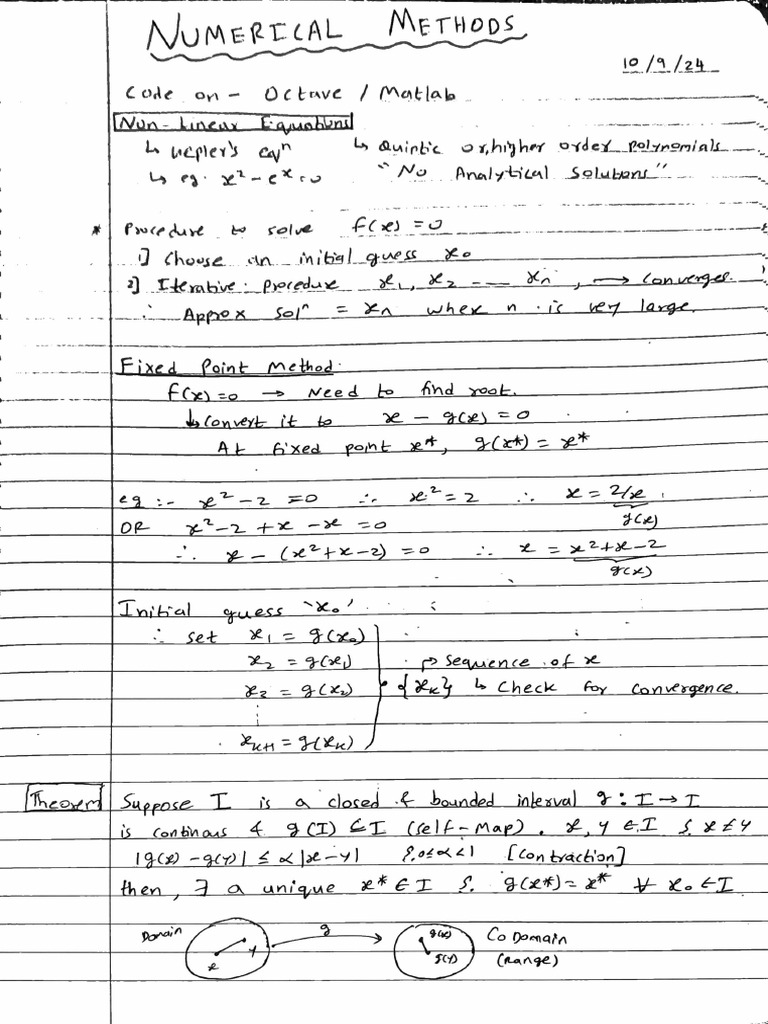 NUMERICAL METHODS
10/9/24
Code on - Octave / Matlab
Non-Linear Equations
↳ Kepler's eqⁿ ↳ Quintic or, higher order polynomials
↳ eg. x² - eˣ = 0 "No Analytical Solutions"
* Procedure to solve f(x) = 0
1] Choose an initial guess x₀
2] Iterative Procedure x₁, x₂ --- xₙ , → converges.
∴ Approx solⁿ = xₙ when n is very large.
Fixed Point Method.
f(x) = 0 → Need to find root.
↳ Convert it to x - g(x) = 0
At fixed point x*, g(x*) = x*
eg :- x² - 2 = 0 ∴ x² = 2 ∴ x = 2/x
g(x)
OR x² - 2 + x - x = 0
∴ x - (x² + x - 2) = 0 ∴ x = x² + x - 2
g(x)
Initial guess 'x₀'
∴ set x₁ = g(x₀)
x₂ = g(x₁) → sequence of x
x₂ = g(x₂) {xₖ} ↳ Check for convergence.
⋮
xₖ₊₁ = g(xₖ)
Theorem Suppose I is a closed & bounded interval g : I → I
is continous & g(I) ⊆ I (self-map). x, y ∈ I & x ≠ y
|g(x) - g(y)| ≤ α|x - y| & 0 ≤ α < 1 [contraction]
then, ∃ a unique x* ∈ I & g(x*) = x* ∀ x₀ ∈ I
Domain x y g g(x) g(y) Co Domain
(range)